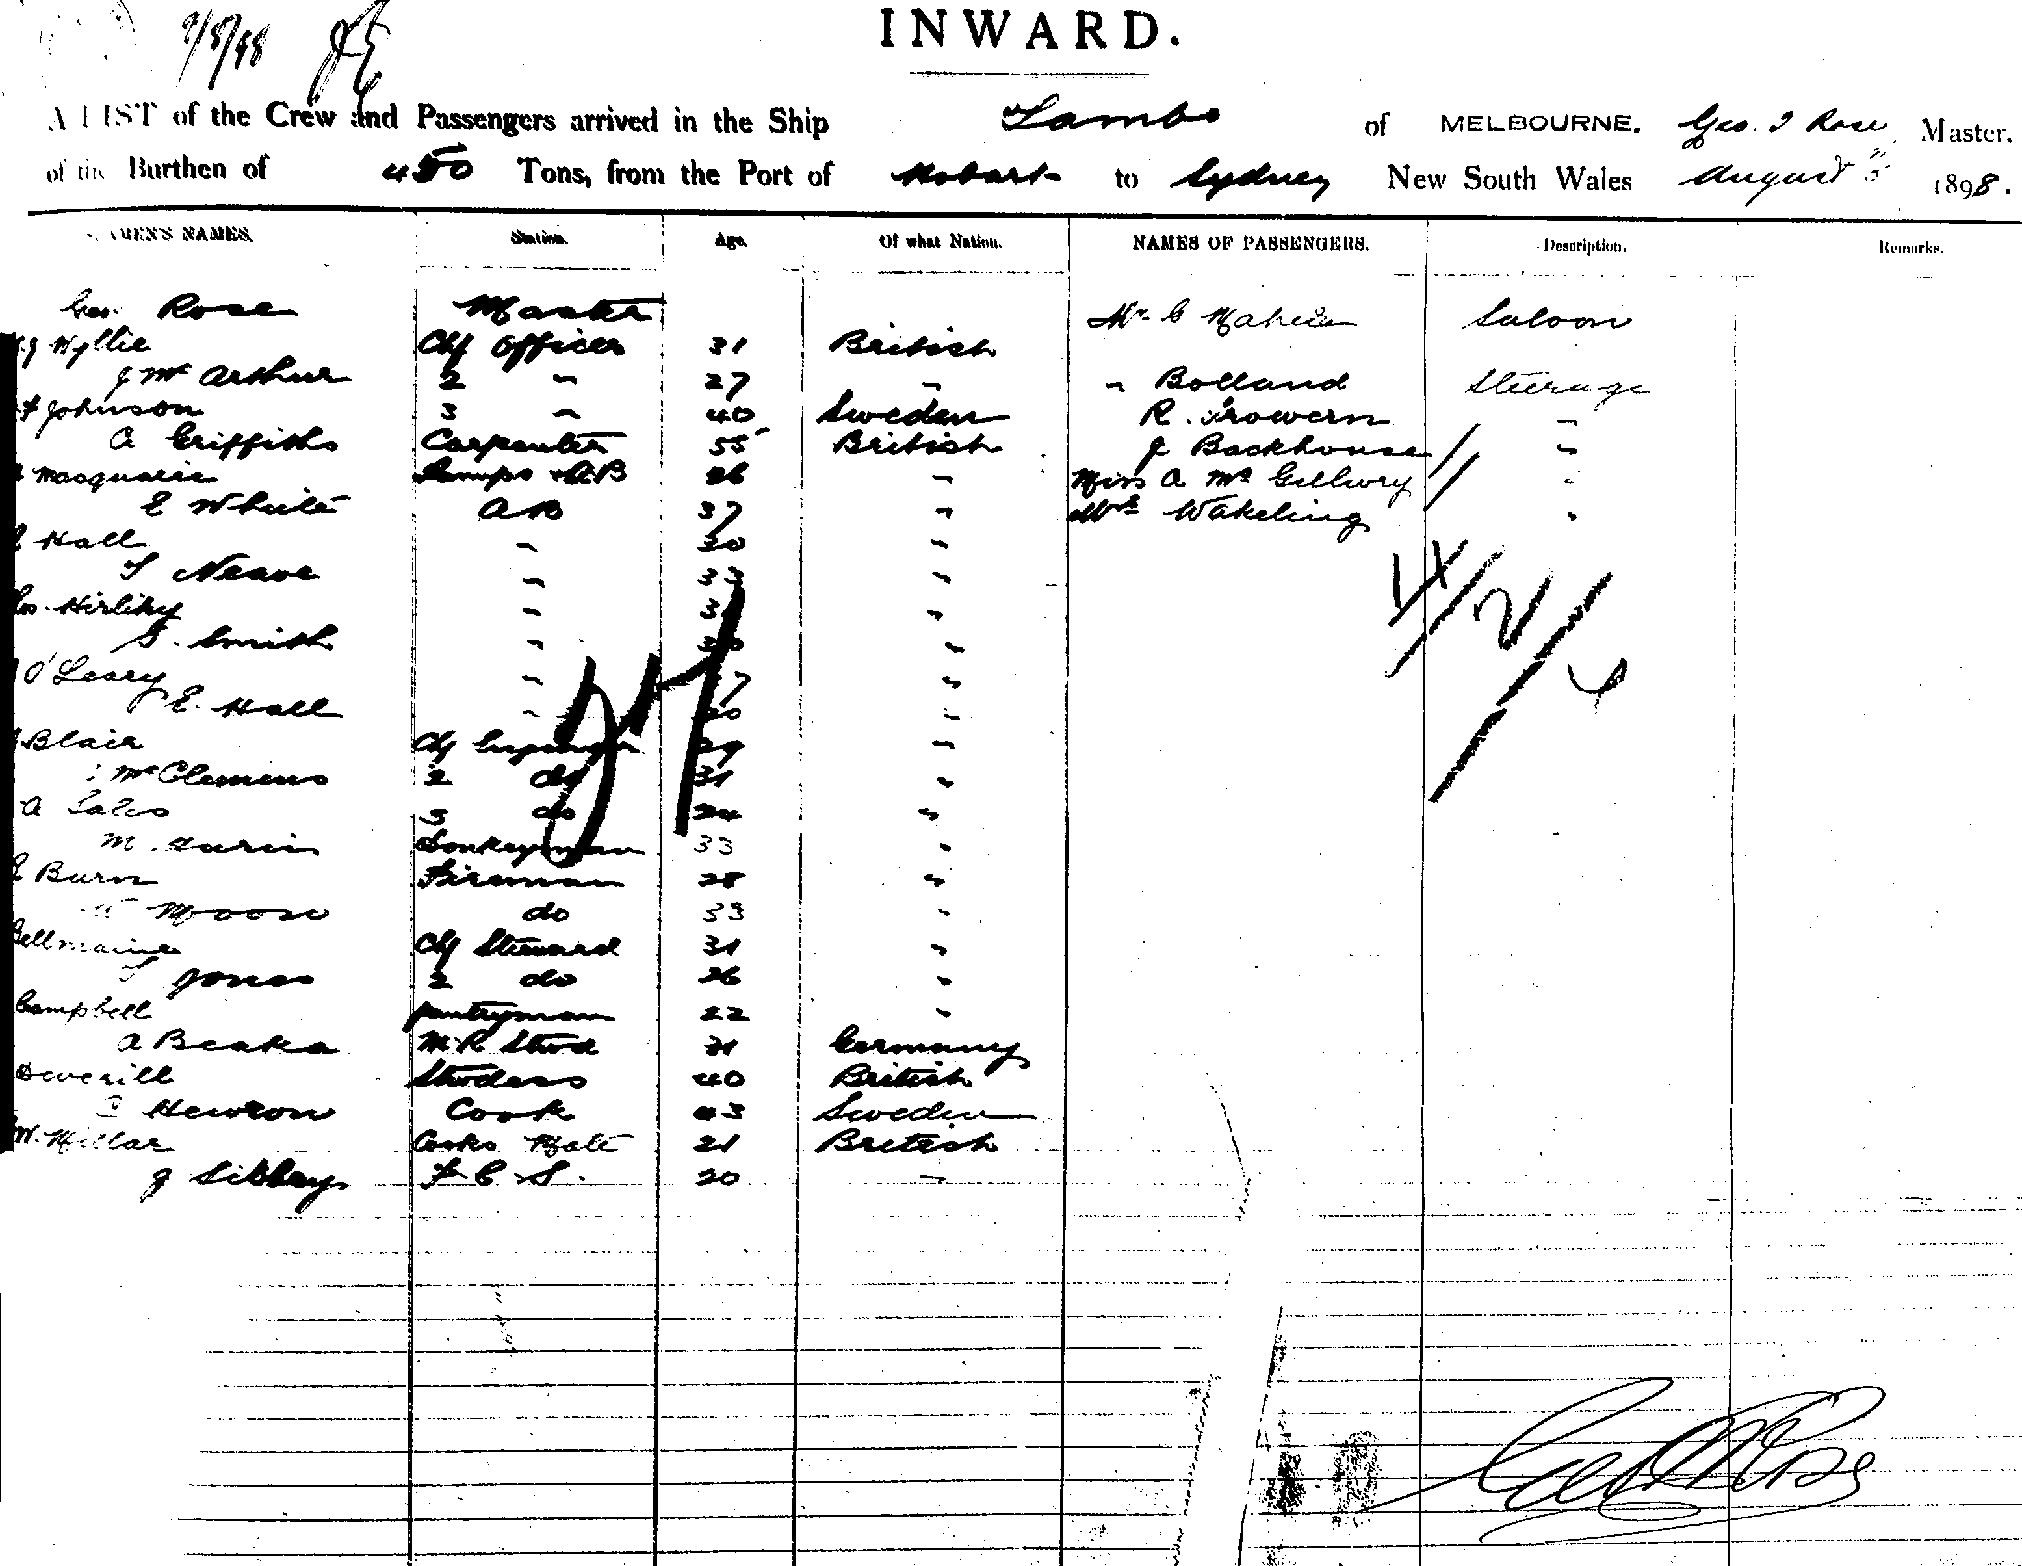 9/8/98
INWARD.
A LIST of the Crew and Passengers arrived in the Ship of MELBOURNE. Geo. J Rose, Master.
of the Burthen of 450 Tons, from the Port of Hobart to Sydney New South Wales August 1898.
NAMES. Station. Age. Of what Nation. NAMES OF PASSENGERS. Description. Remarks.
Geo. Rose Master Mr Saloon
Wyllie Chf Officer 31 British
J McArthur 2 " 27 " " Bolland Steerage
Johnson 3 " 40 Sweden R. Trowern "
A Griffiths Carpenter 55 British J Backhouse "
Macquarie Lamps & AB 26 " Miss A "
E White AB 37 " Mrs Wakeling "
Hall " 30 "
T Neave " 33 "
" "
G. Smith " "
O'Leary " "
E. Hall " "
Blair Chf Engineer "
McClemens 2 do 31 "
A 3 do 24 "
M. Donkeyman 33 "
J Burn Fireman 28 "
Moose do 33 "
Bellmaine Chf Steward 31 "
Jones 2 do 26 "
Campbell pantryman 22 "
A Beaka M. R Stwd 21 Germany
Deverill Stwdess 40 British
Hewson Cook 43 Sweden
W. Millar Cooks Mate 21 British
J Sibbey F C S. 20 "
4/2/6